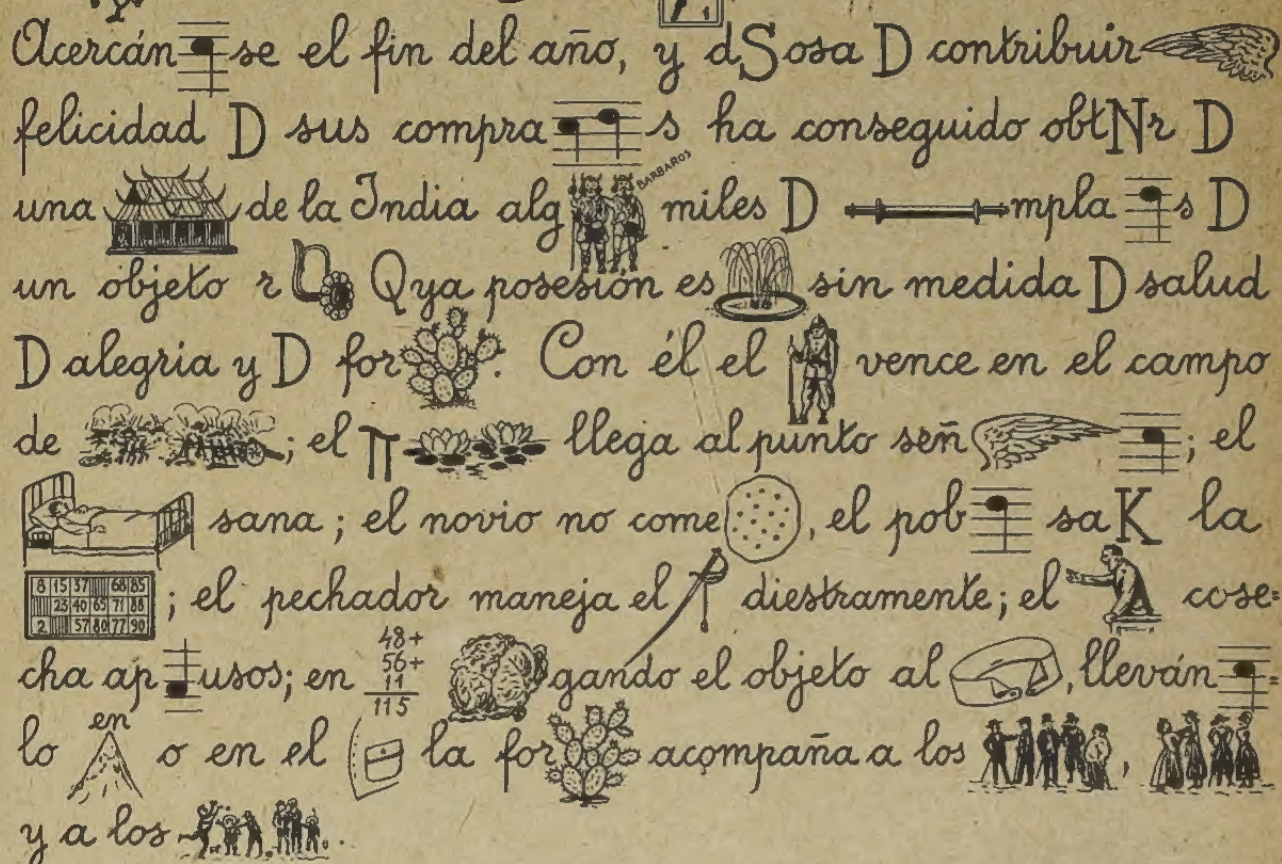 Acercán se el fin del año, y dSosa D contribuir
felicidad D sus compra s ha conseguido obtNr D
BARBAROS
una de la India alg miles D mpla s D
un objeto r Qya posesión es sin medida D salud
D alegria y D for . Con él el vence en el campo
de ; el llega al punto señ ; el
sana ; el novio no come , el pob saK la
8 15 37 68 85
23 40 65 71 88
2 57 80 77 90
; el pechador maneja el diestramente; el cose=
cha ap usos; en
48+
56+
11
115
gando el objeto al , lleván =
lo en o en el la for acompaña a los ,
y a los .